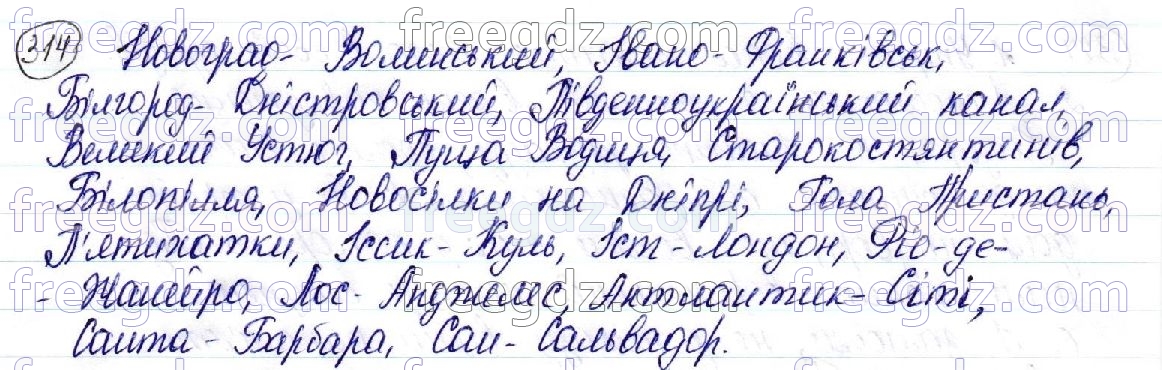 314 Новоград-Волинський, Івано-Франківськ,
Білгород-Дністровський, Південноукраїнський канал,
Великий Устюг, Пуща Водиця, Старокостянтинів,
Білопілля, Новосілки на Дніпрі, Гола Пристань,
П'ятихатки, Іссик-Куль, Іст-Лондон, Ріо-де-
-Жанейро, Лос-Анджелес, Актлантик-Сіті,
Санта-Барбара, Сан-Сальвадор.